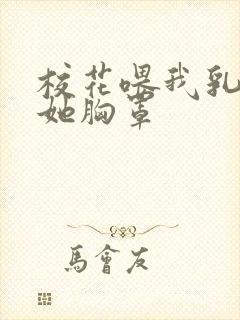 校花喂我乳
她胸罩
馬會友